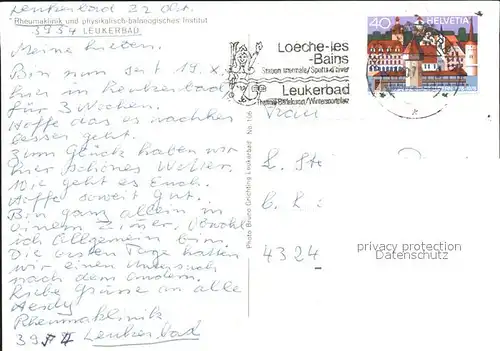 Leukerbad 22 Okt.
Rheumaklinik und physikalisch-balneologisches Institut
3954 LEUKERBAD
Meine Lieben.
Bin nun der 19. X.
hier in Leukerbad
für 3 Wochen.
Hoffe das es nachher
besser geht.
Zum Glück haben wir
hier schönes Wetter.
Wie geht es Euch.
Hoffe soweit Gut.
Bin ganz allein in
einem Zimer, obwohl
ich Allgemein bin.
Die ersten Tage hatten
wir einen Untersuch
nach dem andern.
Liebe Grüsse an alle
Rheumaklinik
Leukerbad
Photo Bruno Grichting Leukerbad No. 136
Loeche-les
-Bains
Station thermale/Sports d'hiver
Leukerbad
Thermal-Badekurort/Wintersportplatz
40 HELVETIA
Frau
L. St
B. R
4324
privacy protection
watermark